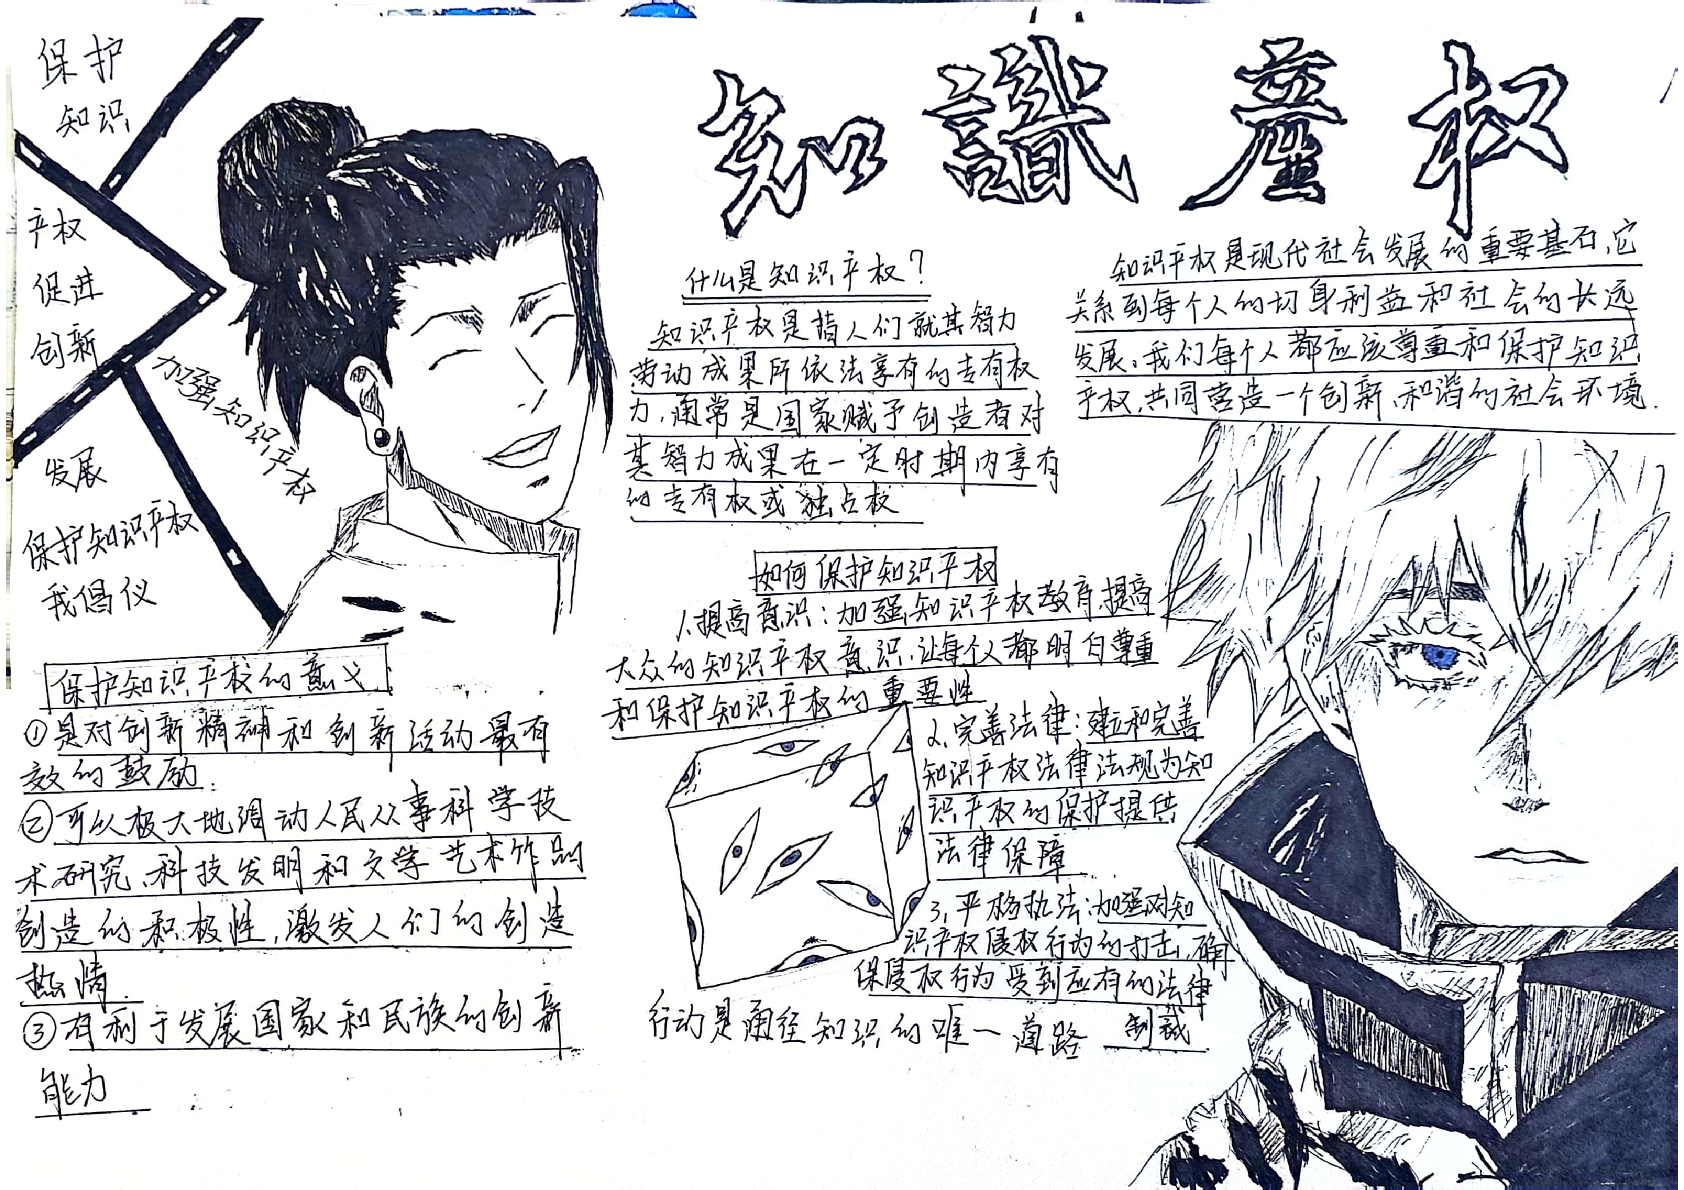 知識產权
保护
知识
产权
促进
创新
加强知识产权
发展
保护知识产权
我倡仪
保护知识产权的意义
①是对创新精神和创新活动最有
效的鼓励.
②可以极大地调动人民从事科学技
术研究、科技发明和文学艺术作品
创造的积极性,激发人们的创造
热情.
③有利于发展国家和民族的创新
能力
什么是知识产权?
知识产权是指人们就其智力
劳动成果所依法享有的专有权
力,通常是国家赋予创造者对
其智力成果在一定时期内享有
的专有权或独占权
知识产权是现代社会发展的重要基石,它
关系到每个人的切身利益和社会的长远
发展,我们每个人都应该尊重和保护知识
产权,共同营造一个创新、和谐的社会环境.
如何保护知识产权
1.提高意识:加强知识产权教育,提高
大众的知识产权意识,让每个人都明白尊重
和保护知识产权的重要性
2.完善法律:建立和完善
知识产权法律法规为知
识产权的保护提供
法律保障
3.严格执法:加强对知
识产权侵权行为的打击,确
保侵权行为受到应有的法律
制裁
行动是通往知识的唯一道路